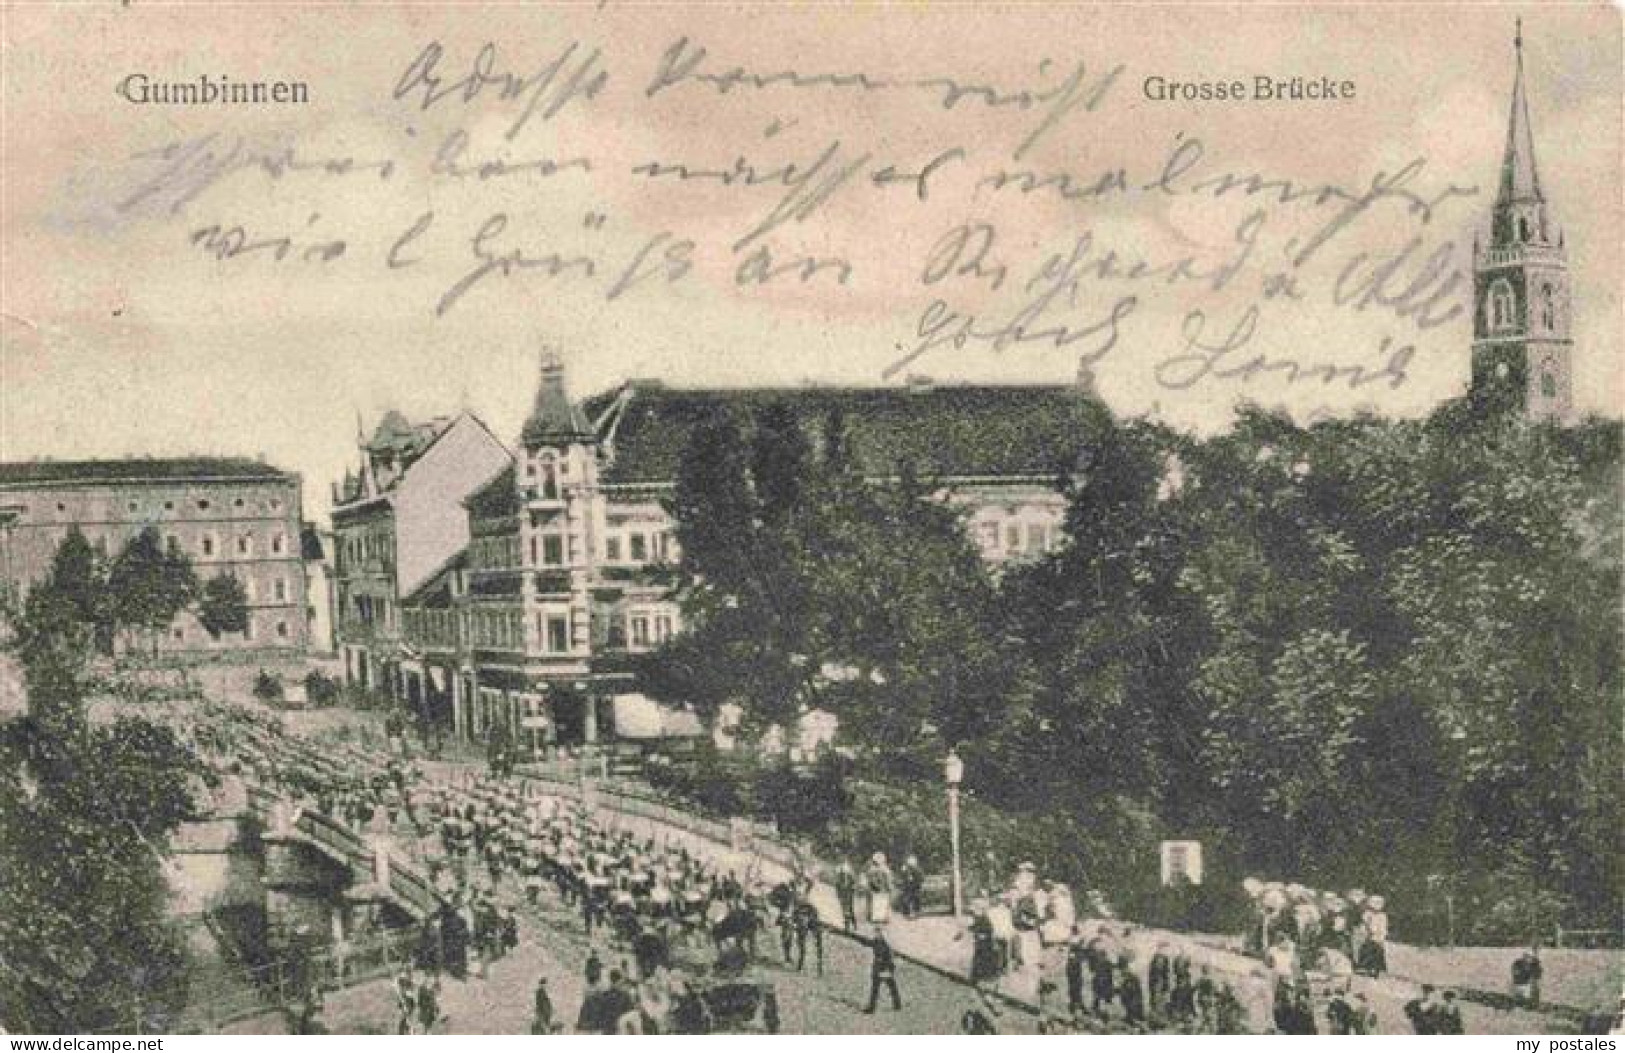 Gumbinnen
Grosse Brücke
Adresse kann nicht
schreiben nächstes mal mehr
viel Grüße an Richard u Alle
www.delcampe.net
my_postales